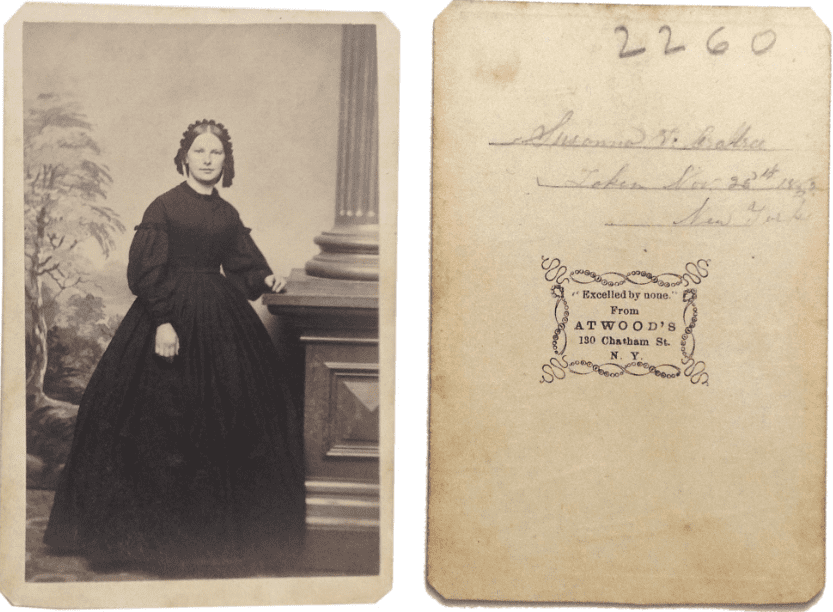 2260
Susanna V.
Taken Nov. 28th
New York
"Excelled by none."
From
ATWOOD'S
130 Chatham St.
N. Y.